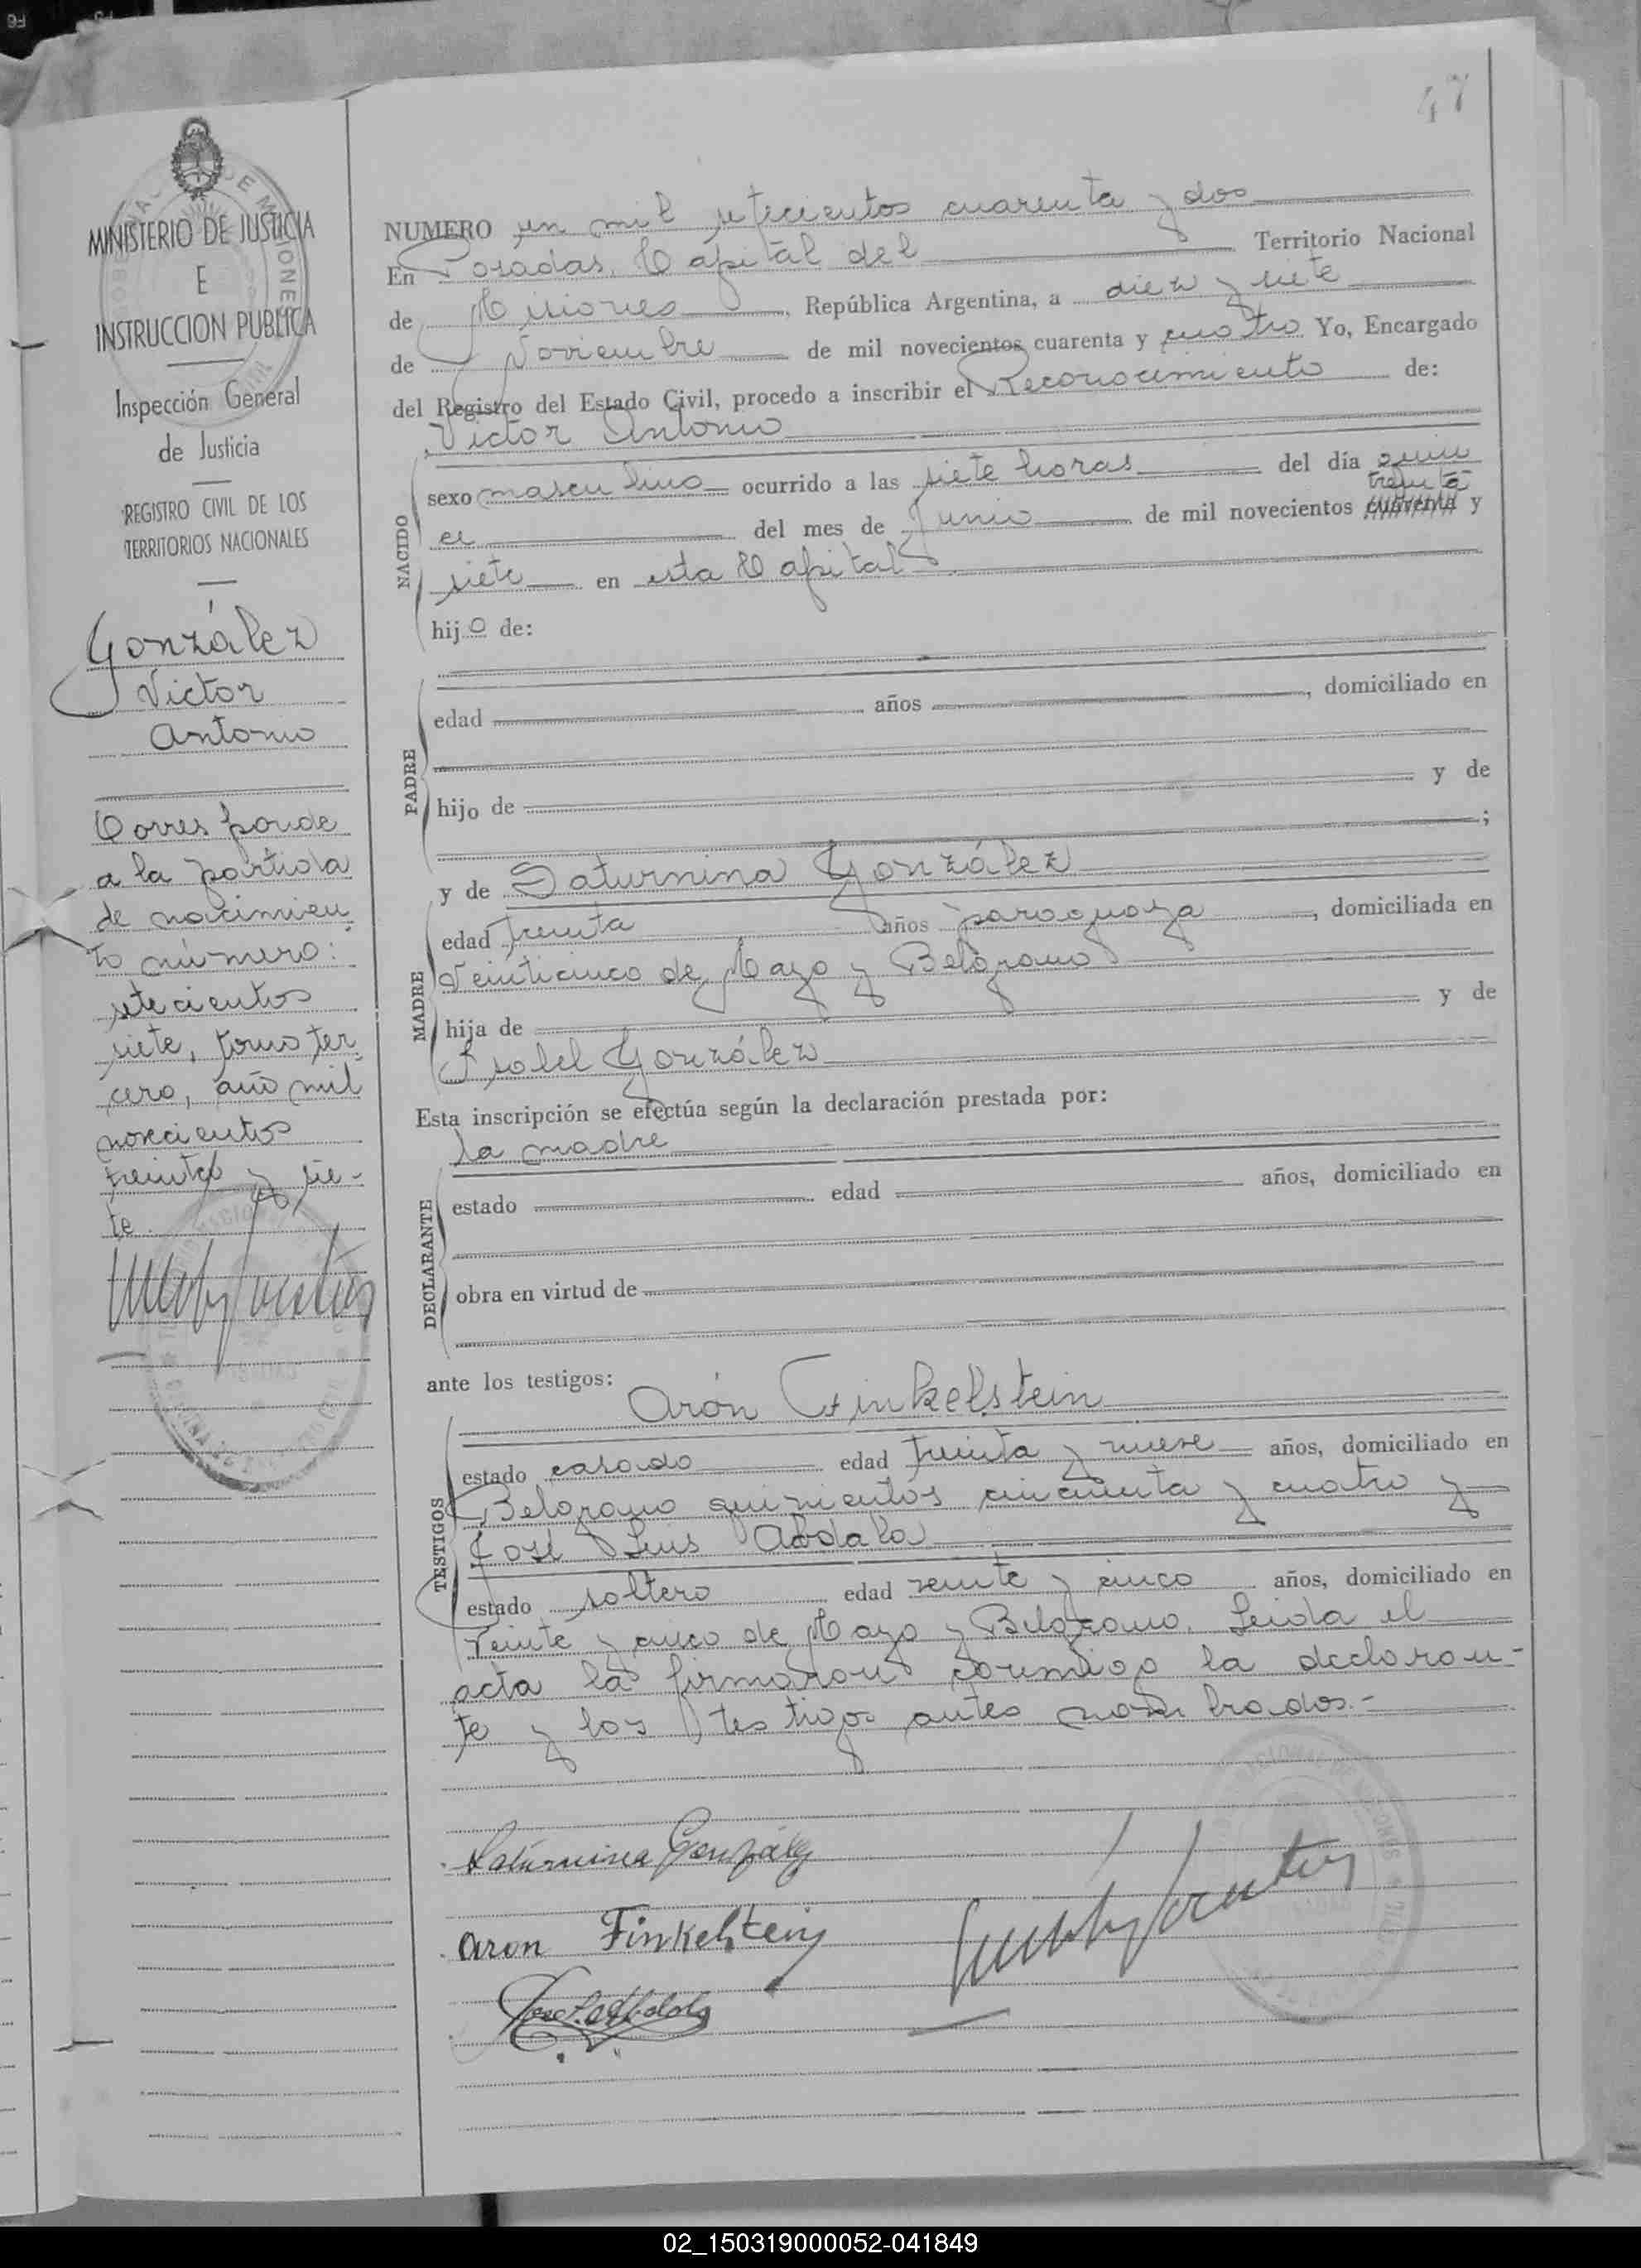 47
MINISTERIO DE JUSTICIA
E
INSTRUCCION PUBLICA
Inspección General
de Justicia
REGISTRO CIVIL DE LOS
TERRITORIOS NACIONALES
González
Victor
Antonio
Corresponde
a la partida
de nacimien
to número:
setecientos
siete, tomo ter
cero, año mil
novecientos
treinta y sie-
te.
NUMERO un mil setecientos cuarenta y dos
En Posadas, Capital del Territorio Nacional
de Misiones, República Argentina, a diez y siete
de Noviembre de mil novecientos cuarenta y cuatro Yo, Encargado
del Registro del Estado Civil, procedo a inscribir el Reconocimiento de:
Victor Antonio
NACIDO
sexo masculino ocurrido a las siete horas del día quin
treinta
ce del mes de Junio de mil novecientos cuarenta y
siete en esta Capital
hijo de:
PADRE
edad años , domiciliado en
hijo de y de
;
MADRE
y de Saturnina González
edad treinta años paraguaya , domiciliada en
Veinticinco de Mayo y Belgrano
hija de y de
Isabel González
Esta inscripción se efectúa según la declaración prestada por:
la madre
DECLARANTE
estado edad años, domiciliado en
obra en virtud de
ante los testigos:
Arón Finkelstein
TESTIGOS
estado casado edad treinta y nueve años, domiciliado en
Belgrano quinientos cincuenta y cuatro y
José Luis Abdala
estado soltero edad veinte y cinco años, domiciliado en
Veinte y cinco de Mayo y Belgrano. Leida el
acta la firmaron conmigo la declaran-
te y los testigos antes nombrados.-
Saturnina González
Aron Finkelstein
Jose L. Abdala
02_150319000052-041849